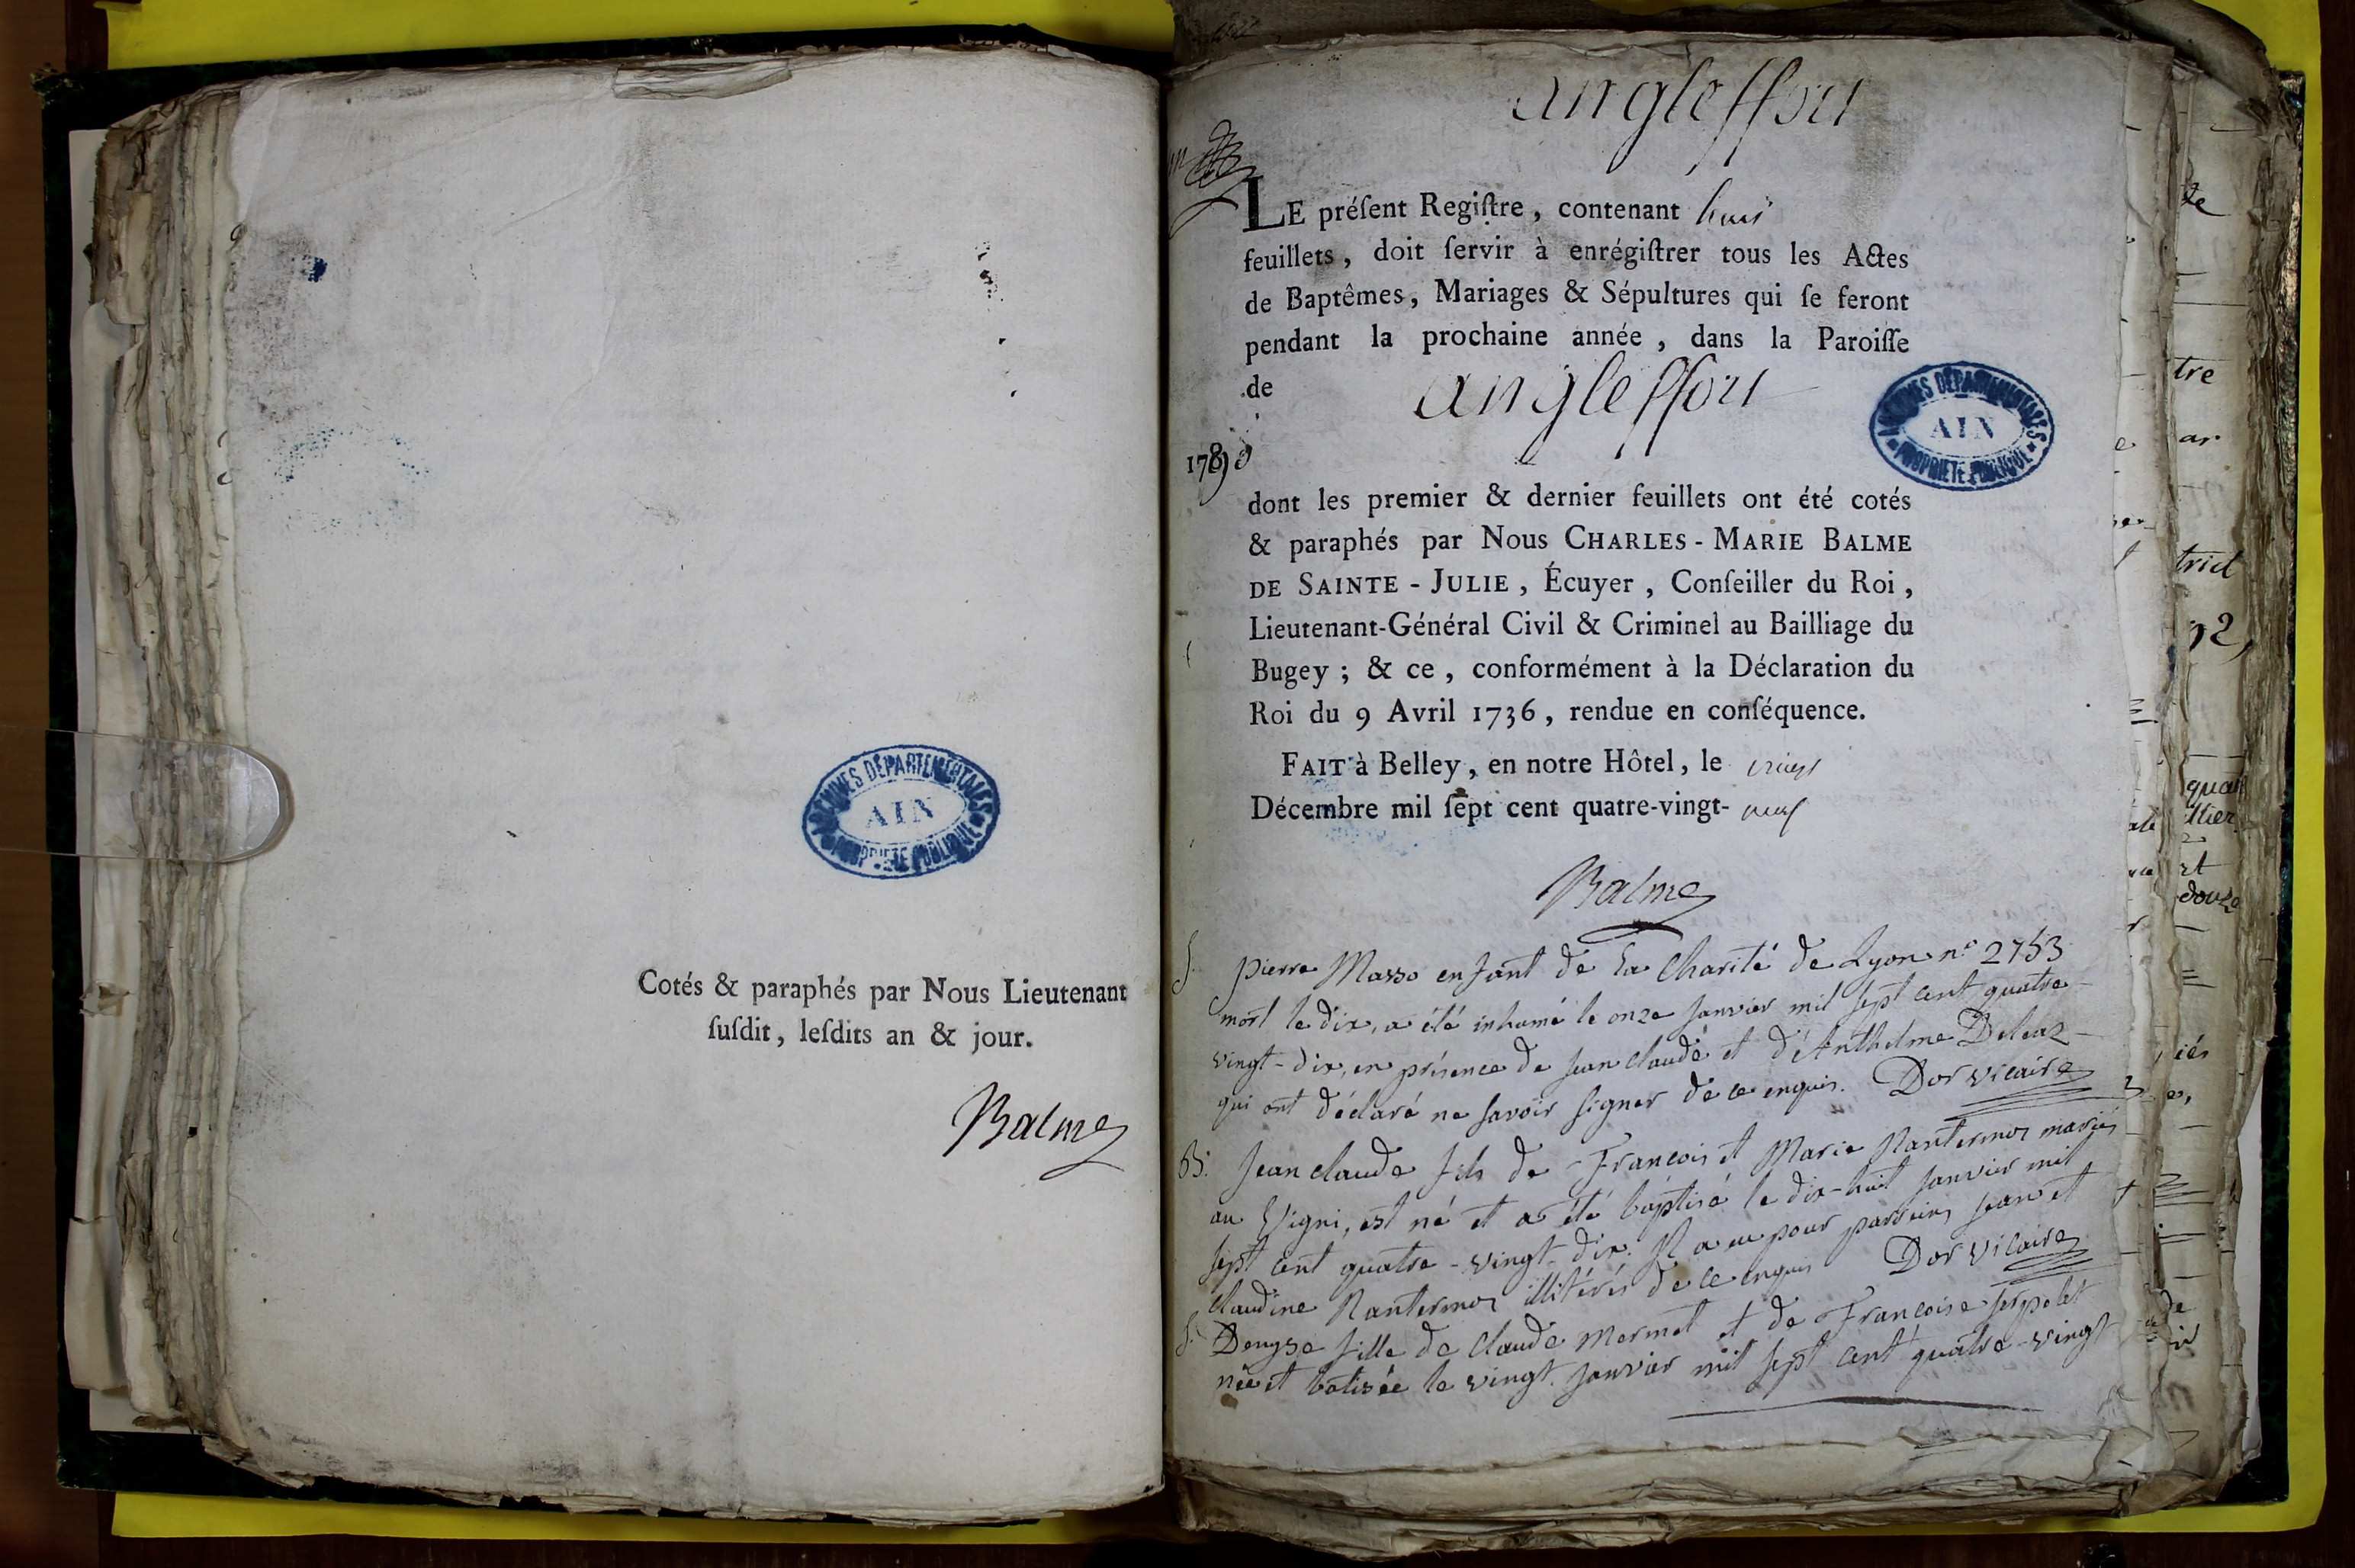 ARCHIVES DÉPARTEMENTALES
AIN
PROPRIÉTÉ PUBLIQUE
Cotés & paraphés par Nous Lieutenant
ſuſdit, leſdits an & jour.
Balme
angleffort
LE préſent Regiſtre, contenant huit
feuillets, doit ſervir à enrégiſtrer tous les Actes
de Baptêmes, Mariages & Sépultures qui ſe feront
pendant la prochaine année, dans la Paroiſſe
de angleffort
ARCHIVES DÉPARTEMENTALES
AIN
PROPRIÉTÉ PUBLIQUE
dont les premier & dernier feuillets ont été cotés
& paraphés par Nous CHARLES-MARIE BALME
DE SAINTE-JULIE, Écuyer, Conſeiller du Roi,
Lieutenant-Général Civil & Criminel au Bailliage du
Bugey; & ce, conformément à la Déclaration du
Roi du 9 Avril 1736, rendue en conſéquence.
FAIT à Belley, en notre Hôtel, le vingt
Décembre mil ſept cent quatre-vingt-neuf
Balme
S. pierre Masso enfant de la Charité de Lyon n° 2753
mort le dix, a été inhumé le onze janvier mil sept cent quatre
vingt-dix, en présence de jean claude et d'Anthelme Deleaz
qui ont déclaré ne savoir signer de ce enquis. Dor vicaire
B. jean claude fils de François et Marie Nantermoz mariés
au Vigni, est né et a été baptisé le dix-huit janvier mil
sept cent quatre-vingt-dix. Il a eu pour parreins jean et
claudine Nantermoz illitérés de ce enquis Dor vicaire
Denyse fille de claude Mermet et de Françoise serpolet
née et batisée le vingt janvier mil sept cent quatre-vingt